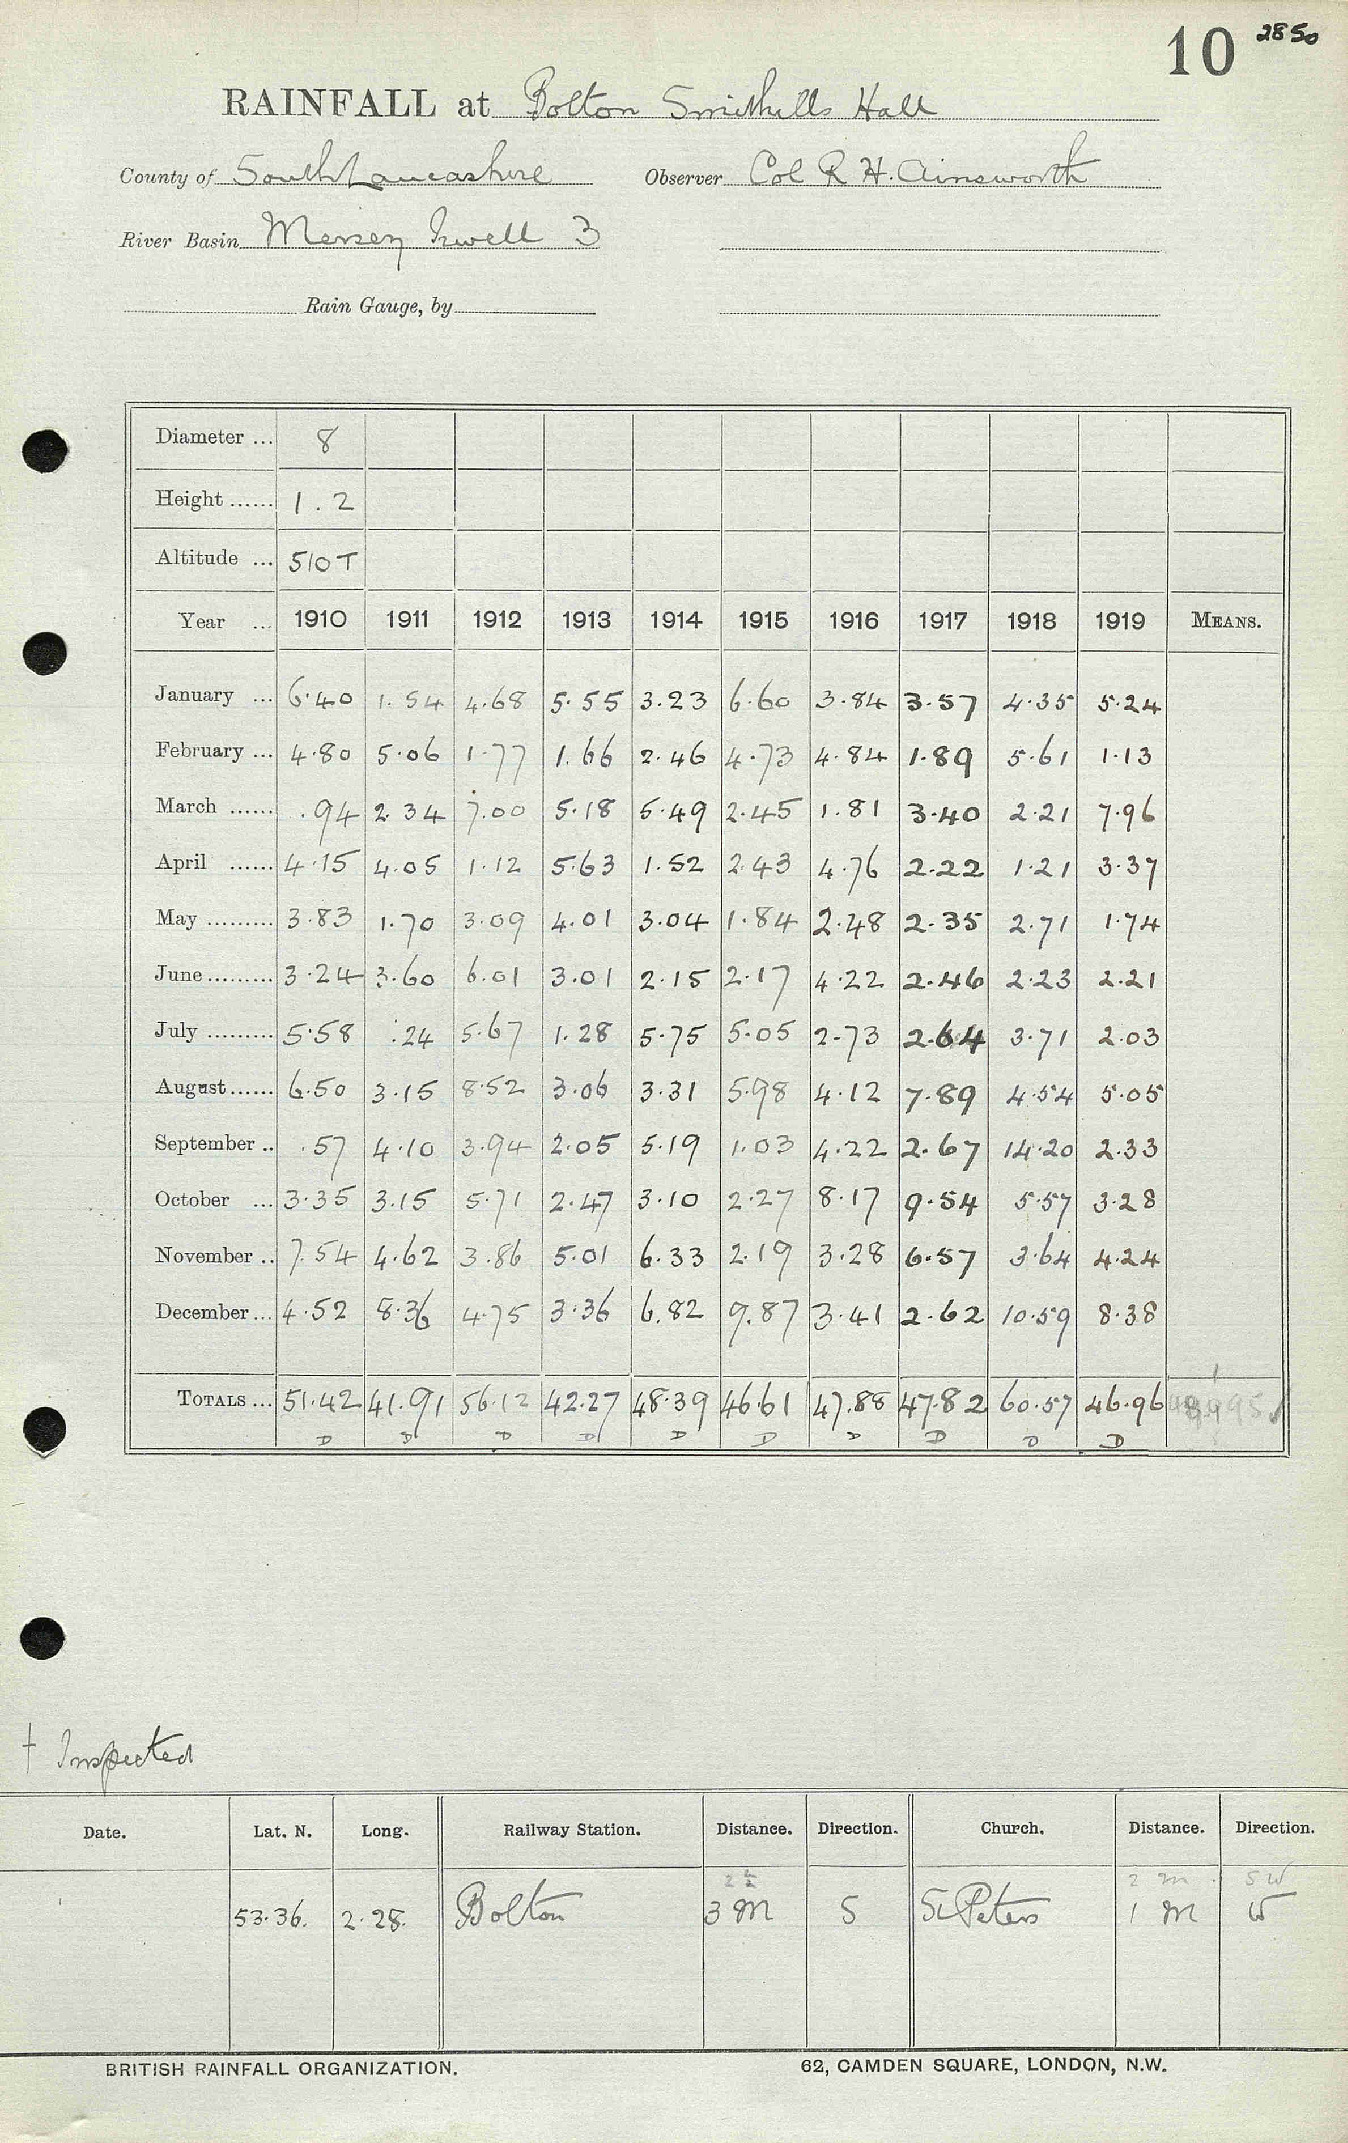 10 2850
RAINFALL at Bolton Smithills Hall
County of South Lancashire Observer Col R H. Ainsworth
River Basin Mersey Irwell 3
Rain Gauge, by
Diameter ... 8
Height ...... 1.2
Altitude ... 510 T
Year ... 1910 1911 1912 1913 1914 1915 1916 1917 1918 1919 MEANS.
January ... 6.40 1.54 4.68 5.55 3.23 6.60 3.84 3.57 4.35 5.24
February ... 4.80 5.06 1.77 1.66 2.46 4.73 4.84 1.89 5.61 1.13
March ...... .94 2.34 7.00 5.18 5.49 2.45 1.81 3.40 2.21 7.96
April ...... 4.15 4.05 1.12 5.63 1.52 2.43 4.76 2.22 1.21 3.37
May ......... 3.83 1.70 3.09 4.01 3.04 1.84 2.48 2.35 2.71 1.74
June ......... 3.24 3.60 6.01 3.01 2.15 2.17 4.22 2.46 2.23 2.21
July ......... 5.58 .24 5.67 1.28 5.75 5.05 2.73 2.64 3.71 2.03
August ...... 6.50 3.15 8.52 3.06 3.31 5.98 4.12 7.89 4.54 5.05
September .. .57 4.10 3.94 2.05 5.19 1.03 4.22 2.67 14.20 2.33
October ... 3.35 3.15 5.71 2.47 3.10 2.27 8.17 9.54 5.57 3.28
November .. 7.54 4.62 3.86 5.01 6.33 2.19 3.28 6.57 3.64 4.24
December ... 4.52 8.36 4.75 3.36 6.82 9.87 3.41 2.62 10.59 8.38
TOTALS ... 51.42 41.91 56.12 42.27 48.39 46.61 47.88 47.82 60.57 46.96
D D D D D D D D D D
† Inspected
Date. Lat. N. Long. Railway Station. Distance. Direction. Church. Distance. Direction.
2½ 2 m SW
53.36. 2.28. Bolton 3 M S St Peters 1 M W
BRITISH RAINFALL ORGANIZATION. 62, CAMDEN SQUARE, LONDON, N.W.